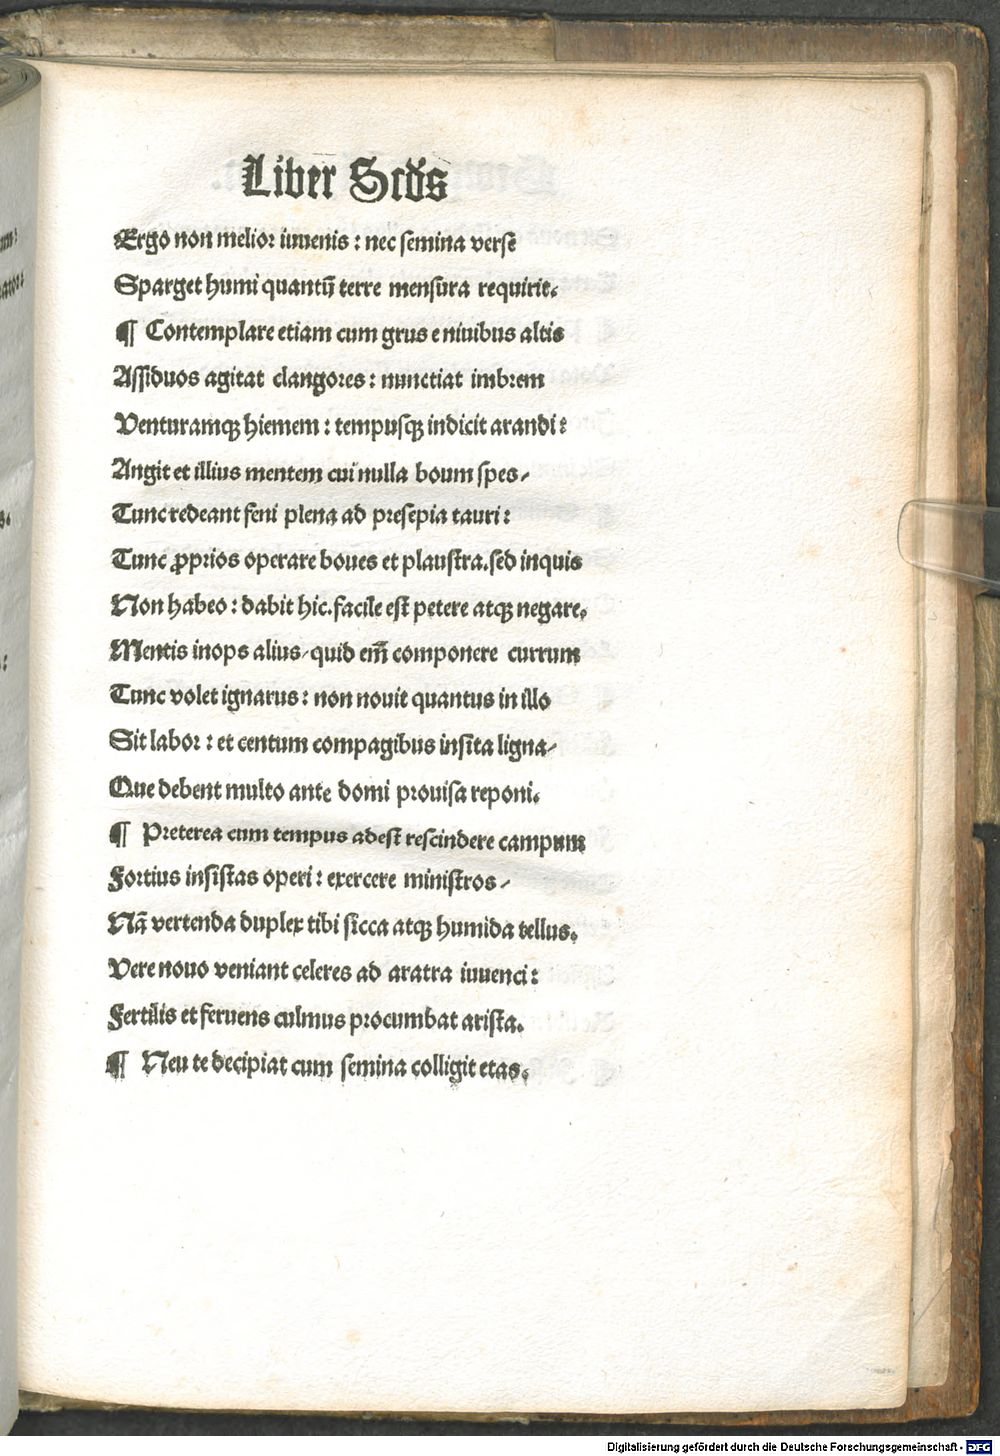 Liber Scd̄s
Ergo non melior iuuenis : nec semina versē
Sparget humi quantū terre mensura requirit.
¶ Contemplare etiam cum grus e niuibus altis
Assiduos agitat clangores : nunctiat imbrem
Venturamqꝫ hiemem : tempusqꝫ indicit arandi :
Angit et illius mentem cui nulla boum spes /
Tunc redeant feni plena ad presepia tauri :
Tunc ꝓprios operare boues et plaustra. sed inquis
Non habeo : dabit hic. facile est petere atqꝫ negare.
Mentis inops alius / quid em̄ componere currum
Tunc volet ignarus : non nouit quantus in illo
Sit labor : et centum compagibus insita ligna /
Que debent multo ante domi prouisa reponi.
¶ Preterea cum tempus adest rescindere campum
Fortius insistas operi : exercere ministros /
Nā vertenda duplex tibi sicca atqꝫ humida tellus.
Vere nouo veniant celeres ad aratra iuuenci :
Fertilis et feruens culmus procumbat arista.
¶ Neu te decipiat cum semina colligit etas.
Digitalisierung gefördert durch die Deutsche Forschungsgemeinschaft - DFG